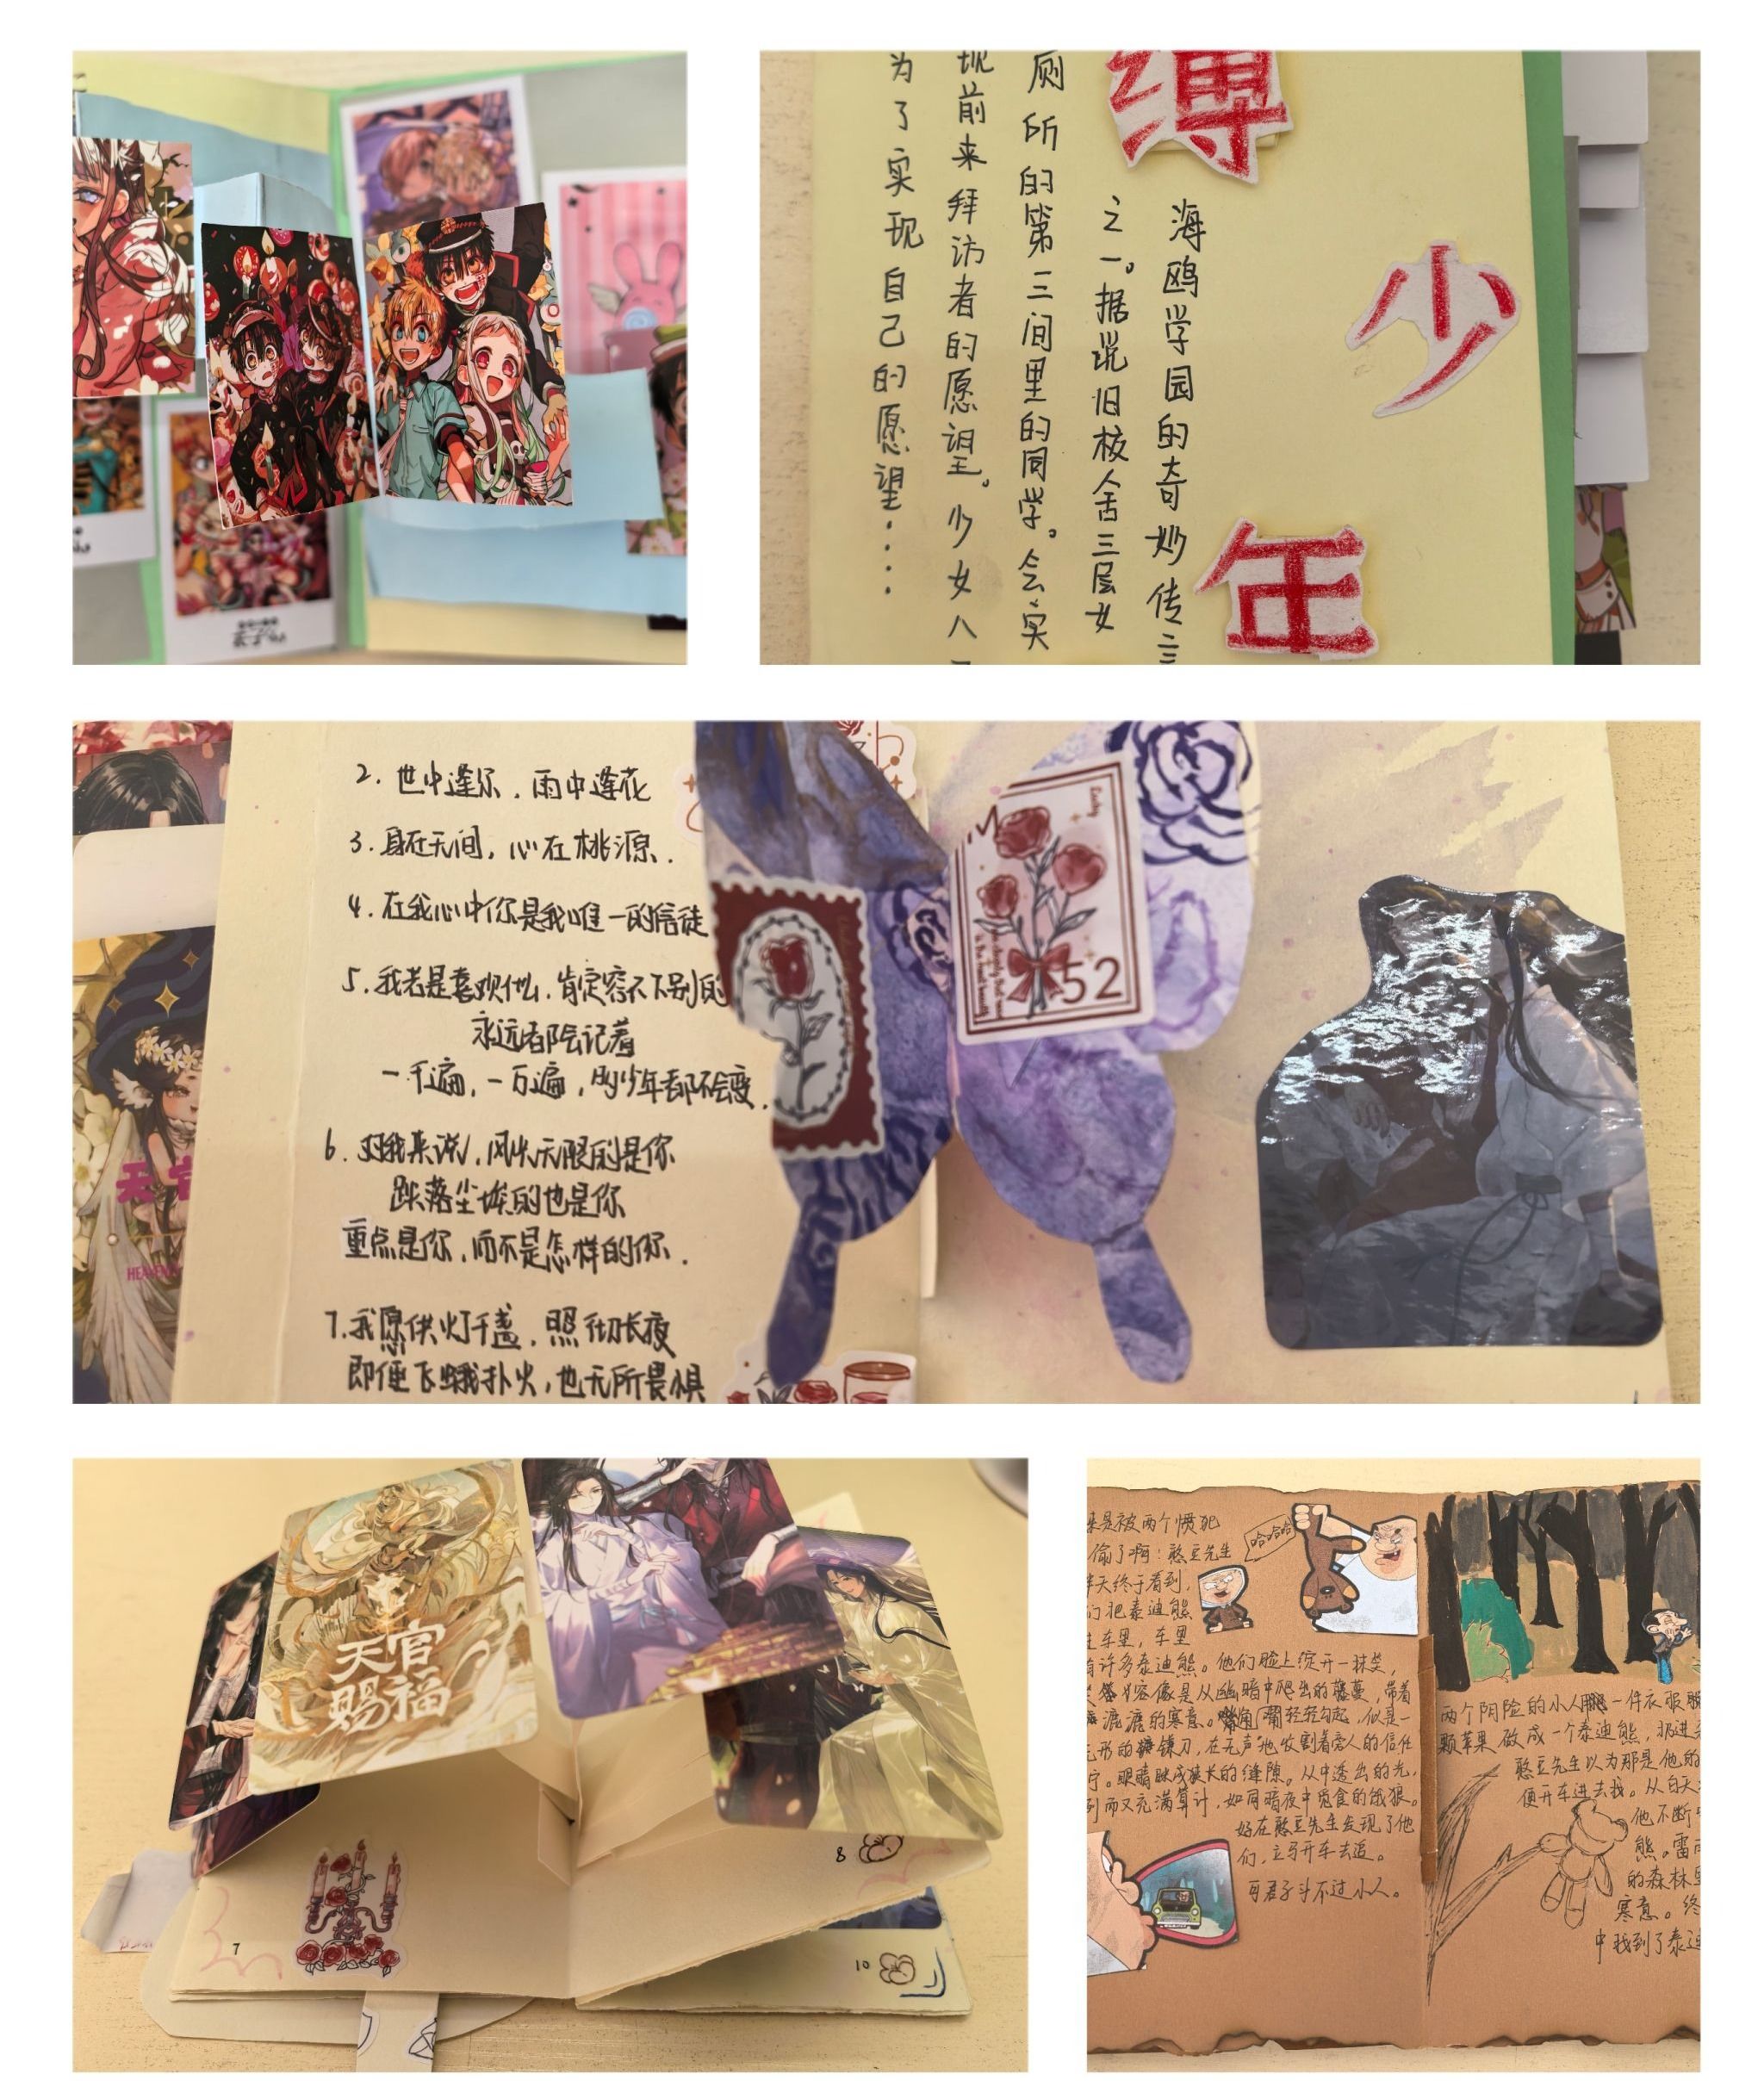 缚
少
年
海鸥学园的奇妙传言
之一。据说旧校舍三层女
厕所的第三间里的同学。会实
现前来拜访者的愿望。少女八
为了实现自己的愿望....
2. 世中逢尔，雨中逢花
3. 身在无间，心在桃源.
4. 在我心中你是我唯一的信徒
5. 我若是喜欢什么，肯定容不下别的
永远都会记着
一千遍，一万遍，
年都不会变.
6. 对我来说，风光无限的是你
跌落尘埃的也是你
重点是你，而不是怎样的你.
7. 我愿供灯千盏，照彻长夜
即便飞蛾扑火，也无所畏惧
52
天官
HEAVEN
天官
赐福
7
8
10
是被两个惯犯
偷了啊：憨豆先生
天终于看到，
们把泰迪熊
车里，车里
许多泰迪熊。他们脸上绽开一抹笑，
容像是从幽暗中爬出的藤蔓，带着
的寒意。嘴角轻轻勾起，似是一
形的镰刀，在无声地收割着旁人的信任
眼睛眯成狭长的缝隙。从中透出的光，
而又充满算计，如同暗夜中觅食的饿狼。
好在憨豆先生发现了他
们，立马开车去追。
可君子斗不过小人。
哈哈哈
两个阴险的小人
一件衣服
颗苹果做成一个泰迪熊，扔进
憨豆先生以为那是他的
便开车进去找。从白天
他不断
熊。雷
的森林里
寒意。终
中找到了泰迪